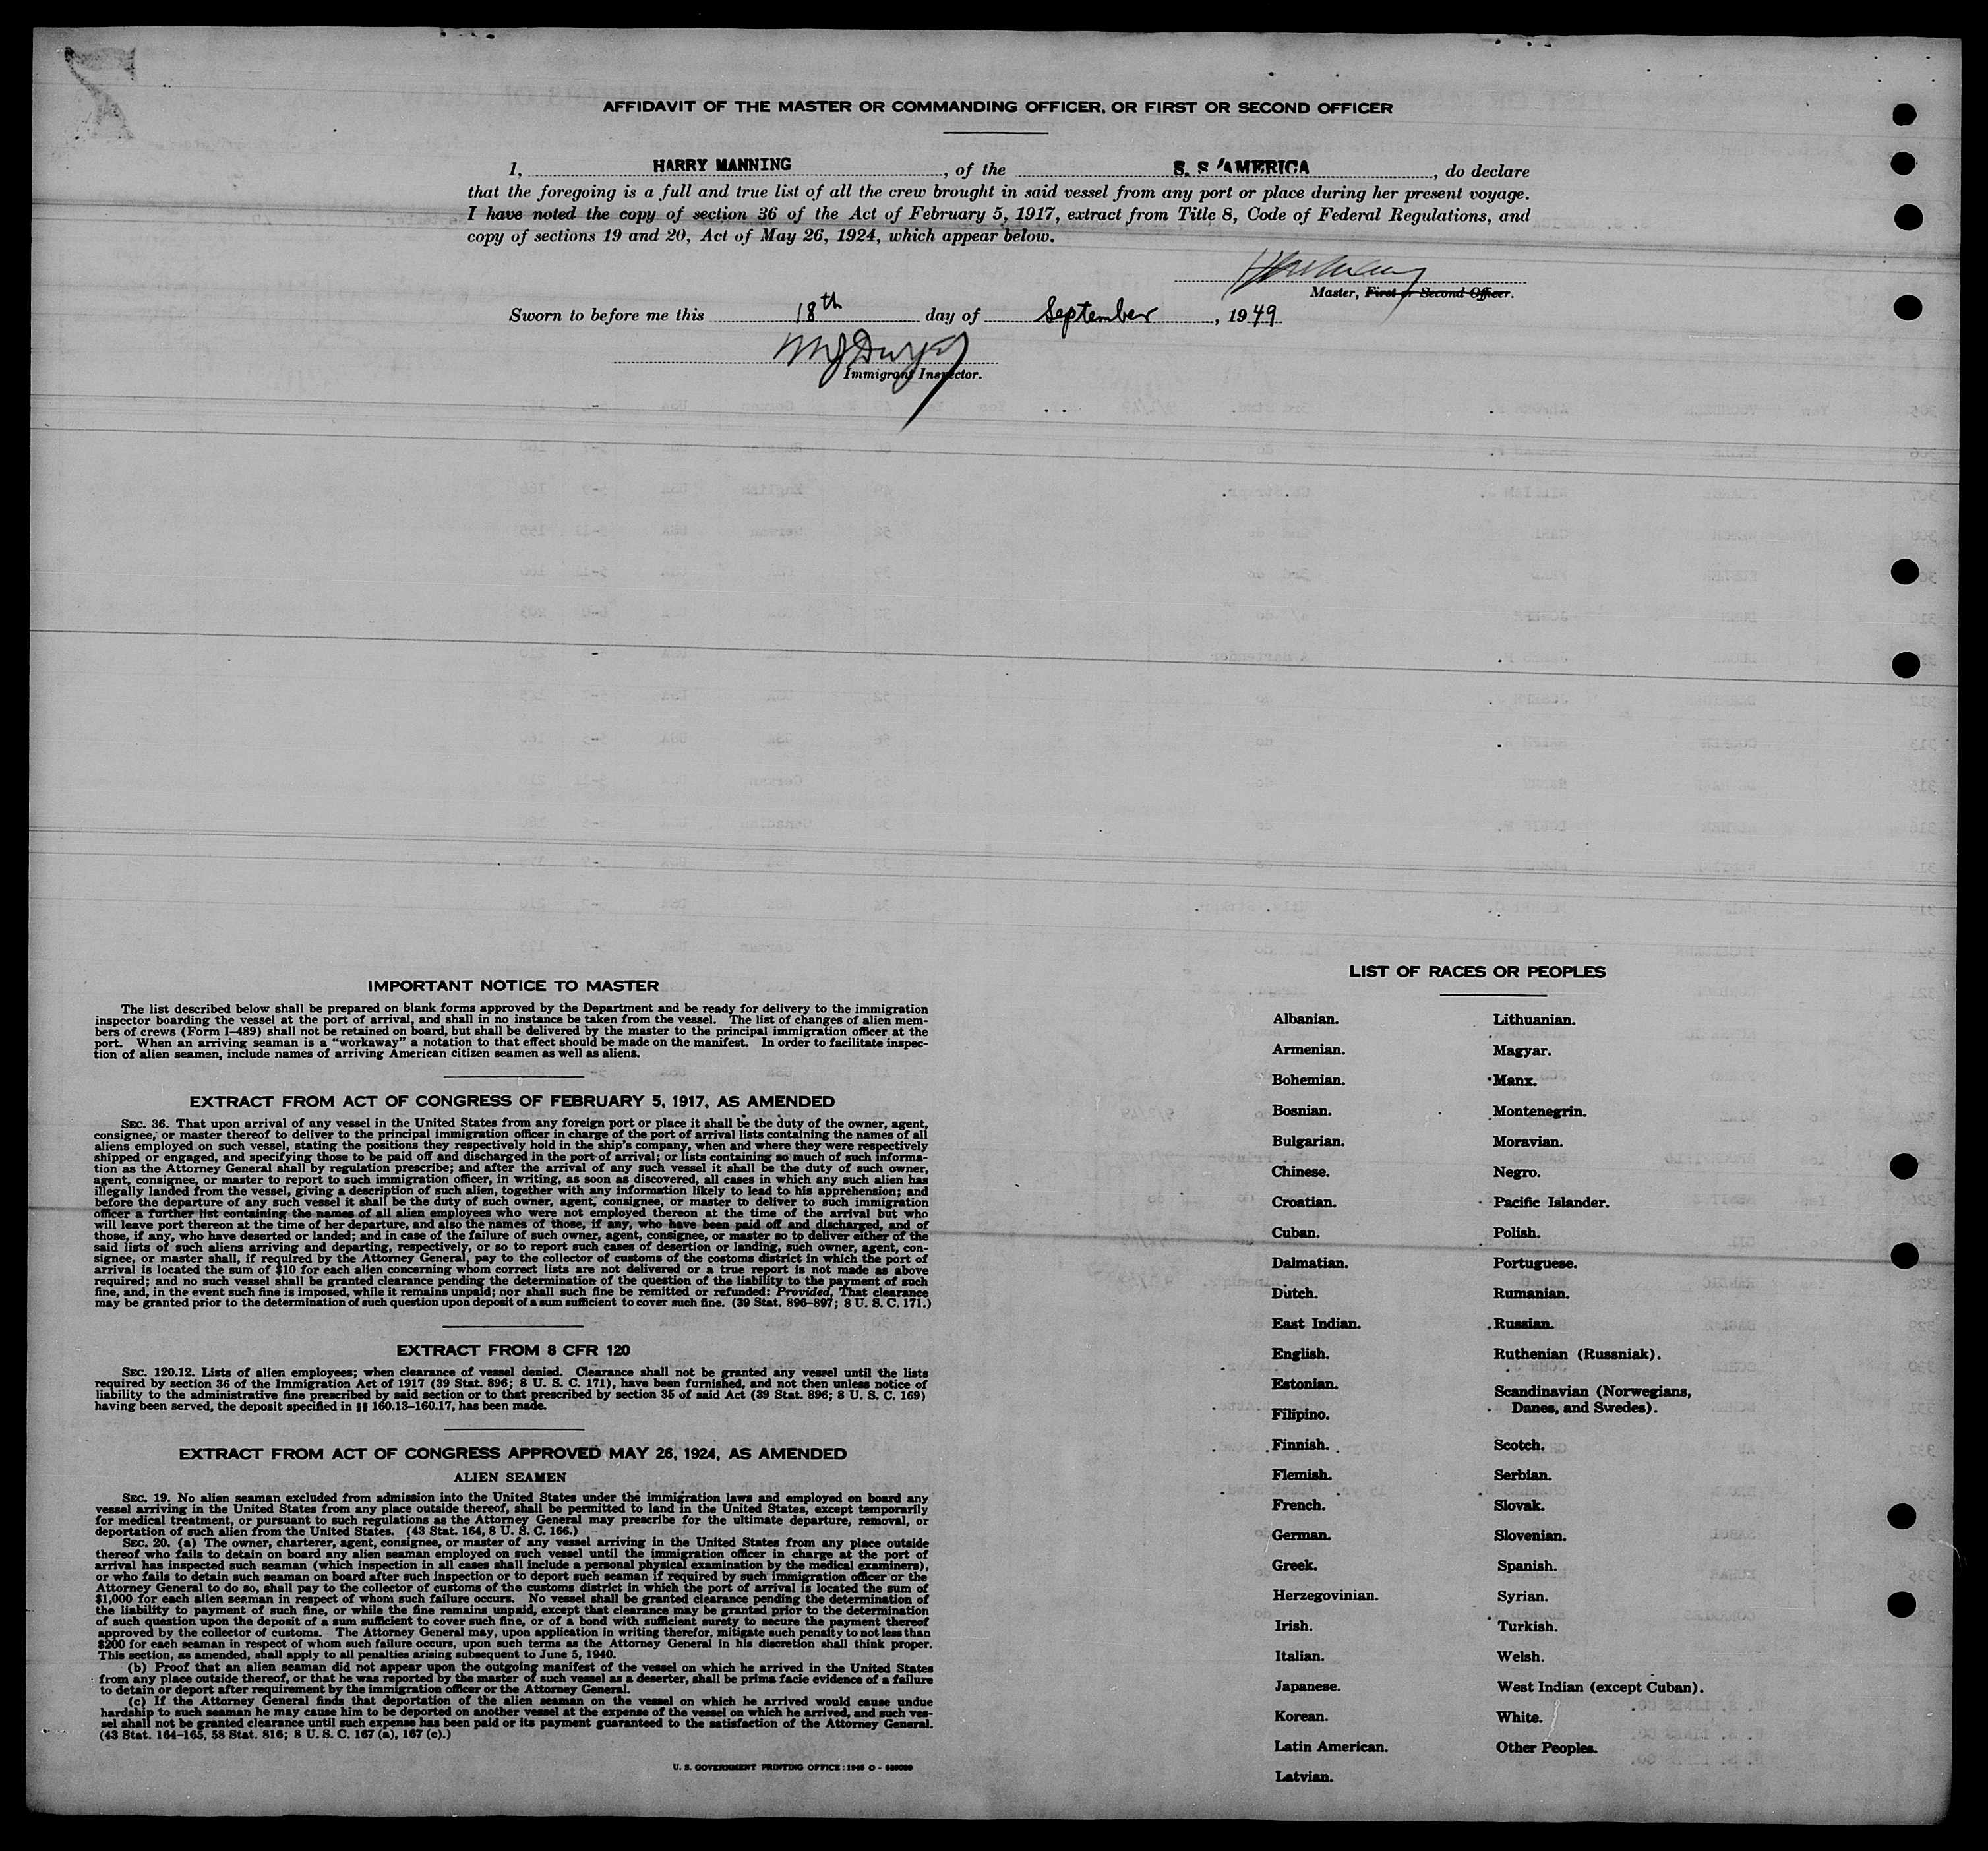 AFFIDAVIT OF THE MASTER OR COMMANDING OFFICER, OR FIRST OR SECOND OFFICER
I, HARRY MANNING, of the S. S. AMERICA, do declare
that the foregoing is a full and true list of all the crew brought in said vessel from any port or place during her present voyage.
I have noted the copy of section 36 of the Act of February 5, 1917, extract from Title 8, Code of Federal Regulations, and
copy of sections 19 and 20, Act of May 26, 1924, which appear below.
Master, First or Second Officer.
Sworn to before me this 18th day of September, 1949
Immigrant Inspector.
IMPORTANT NOTICE TO MASTER
The list described below shall be prepared on blank forms approved by the Department and be ready for delivery to the immigration
inspector boarding the vessel at the port of arrival, and shall in no instance be taken from the vessel. The list of changes of alien mem-
bers of crews (Form I-489) shall not be retained on board, but shall be delivered by the master to the principal immigration officer at the
port. When an arriving seaman is a "workaway" a notation to that effect should be made on the manifest. In order to facilitate inspec-
tion of alien seamen, include names of arriving American citizen seamen as well as aliens.
EXTRACT FROM ACT OF CONGRESS OF FEBRUARY 5, 1917, AS AMENDED
SEC. 36. That upon arrival of any vessel in the United States from any foreign port or place it shall be the duty of the owner, agent,
consignee, or master thereof to deliver to the principal immigration officer in charge of the port of arrival lists containing the names of all
aliens employed on such vessel, stating the positions they respectively hold in the ship's company, when and where they were respectively
shipped or engaged, and specifying those to be paid off and discharged in the port of arrival; or lists containing so much of such informa-
tion as the Attorney General shall by regulation prescribe; and after the arrival of any such vessel it shall be the duty of such owner,
agent, consignee, or master to report to such immigration officer, in writing, as soon as discovered, all cases in which any such alien has
illegally landed from the vessel, giving a description of such alien, together with any information likely to lead to his apprehension; and
before the departure of any such vessel it shall be the duty of such owner, agent, consignee, or master to deliver to such immigration
officer a further list containing the names of all alien employees who were not employed thereon at the time of the arrival but who
will leave port thereon at the time of her departure, and also the names of those, if any, who have been paid off and discharged, and of
those, if any, who have deserted or landed; and in case of the failure of such owner, agent, consignee, or master so to deliver either of the
said lists of such aliens arriving and departing, respectively, or so to report such cases of desertion or landing, such owner, agent, con-
signee, or master shall, if required by the Attorney General, pay to the collector of customs of the costoms district in which the port of
arrival is located the sum of $10 for each alien concerning whom correct lists are not delivered or a true report is not made as above
required; and no such vessel shall be granted clearance pending the determination of the question of the liability to the payment of such
fine, and, in the event such fine is imposed, while it remains unpaid; nor shall such fine be remitted or refunded: Provided, That clearance
may be granted prior to the determination of such question upon deposit of a sum sufficient to cover such fine. (39 Stat. 896-897; 8 U. S. C. 171.)
EXTRACT FROM 8 CFR 120
SEC. 120.12. Lists of alien employees; when clearance of vessel denied. Clearance shall not be granted any vessel until the lists
required by section 36 of the Immigration Act of 1917 (39 Stat. 896; 8 U. S. C. 171), have been furnished, and not then unless notice of
liability to the administrative fine prescribed by said section or to that prescribed by section 35 of said Act (39 Stat. 896; 8 U. S. C. 169)
having been served, the deposit specified in §§ 160.13-160.17, has been made.
EXTRACT FROM ACT OF CONGRESS APPROVED MAY 26, 1924, AS AMENDED
ALIEN SEAMEN
SEC. 19. No alien seaman excluded from admission into the United States under the immigration laws and employed on board any
vessel arriving in the United States from any place outside thereof, shall be permitted to land in the United States, except temporarily
for medical treatment, or pursuant to such regulations as the Attorney General may prescribe for the ultimate departure, removal, or
deportation of such alien from the United States. (43 Stat. 164, 8 U. S. C. 166.)
SEC. 20. (a) The owner, charterer, agent, consignee, or master of any vessel arriving in the United States from any place outside
thereof who fails to detain on board any alien seaman employed on such vessel until the immigration officer in charge at the port of
arrival has inspected such seaman (which inspection in all cases shall include a personal physical examination by the medical examiners),
or who fails to detain such seaman on board after such inspection or to deport such seaman if required by such immigration officer or the
Attorney General to do so, shall pay to the collector of customs of the customs district in which the port of arrival is located the sum of
$1,000 for each alien seaman in respect of whom such failure occurs. No vessel shall be granted clearance pending the determination of
the liability to payment of such fine, or while the fine remains unpaid, except that clearance may be granted prior to the determination
of such question upon the deposit of a sum sufficient to cover such fine, or of a bond with sufficient surety to secure the payment thereof
approved by the collector of customs. The Attorney General may, upon application in writing therefor, mitigate such penalty to not less than
$200 for each seaman in respect of whom such failure occurs, upon such terms as the Attorney General in his discretion shall think proper.
This section, as amended, shall apply to all penalties arising subsequent to June 5, 1940.
(b) Proof that an alien seaman did not appear upon the outgoing manifest of the vessel on which he arrived in the United States
from any place outside thereof, or that he was reported by the master of such vessel as a deserter, shall be prima facie evidence of a failure
to detain or deport after requirement by the immigration officer or the Attorney General.
(c) If the Attorney General finds that deportation of the alien seaman on the vessel on which he arrived would cause undue
hardship to such seaman he may cause him to be deported on another vessel at the expense of the vessel on which he arrived, and such ves-
sel shall not be granted clearance until such expense has been paid or its payment guaranteed to the satisfaction of the Attorney General.
(43 Stat. 164-165, 58 Stat. 816; 8 U. S. C. 167 (a), 167 (c).)
U. S. GOVERNMENT PRINTING OFFICE
LIST OF RACES OR PEOPLES
Albanian.
Armenian.
Bohemian.
Bosnian.
Bulgarian.
Chinese.
Croatian.
Cuban.
Dalmatian.
Dutch.
East Indian.
English.
Estonian.
Filipino.
Finnish.
Flemish.
French.
German.
Greek.
Herzegovinian.
Irish.
Italian.
Japanese.
Korean.
Latin American.
Latvian.
Lithuanian.
Magyar.
Manx.
Montenegrin.
Moravian.
Negro.
Pacific Islander.
Polish.
Portuguese.
Rumanian.
Russian.
Ruthenian (Russniak).
Scandinavian (Norwegians,
Danes, and Swedes).
Scotch.
Serbian.
Slovak.
Slovenian.
Spanish.
Syrian.
Turkish.
Welsh.
West Indian (except Cuban).
White.
Other Peoples.